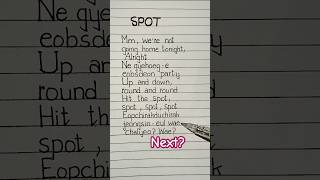 SPOT
Mm, we're not
going home tonight,
Alright
Ne gyehoeg-e
eobsdeon party
Up and down,
round and round
Hit the spot,
spot, spot, spot
Eopchirahduchirah
jeongsin-eul wae
chalyeo? Wae?
Next?